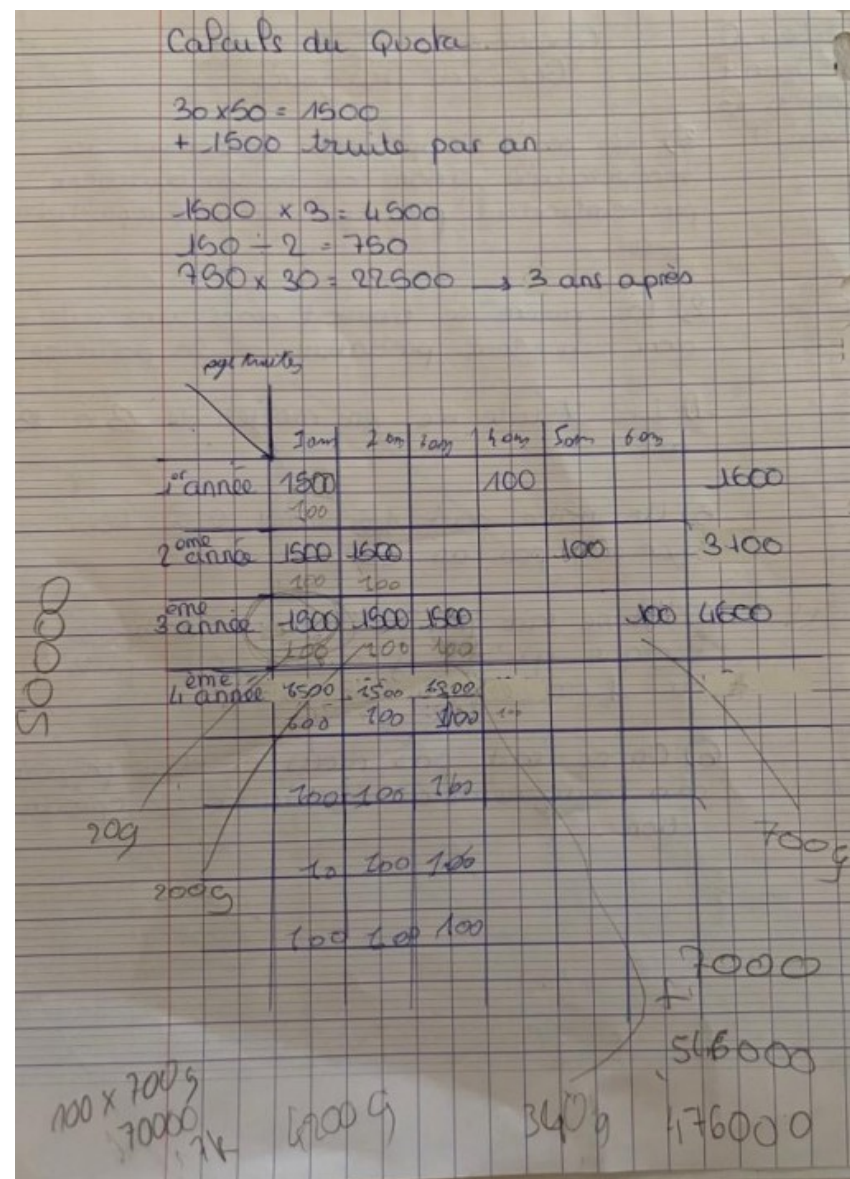 Calculs du Quota
30 x 50 = 1500
+ 1500 truite par an
1500 x 3 = 4500
150 ÷ 2 = 750
750 x 30 = 22500 → 3 ans après
age truites
1 an 2 an 3 ans 4 ans 5 an 6 ans
1er année 1500 100 1600
100
2ème année 1500 1500 100 3100
100 100
3ème année 1500 1500 1500 100 4600
100 100 100
4ème année 1500 1500 1500
100 100 100
100 100 100
10 100 100
100 100 100
50000
20g
200g
700g
7000
+
546000
100 x 700g
70000
4200g
340g
476000